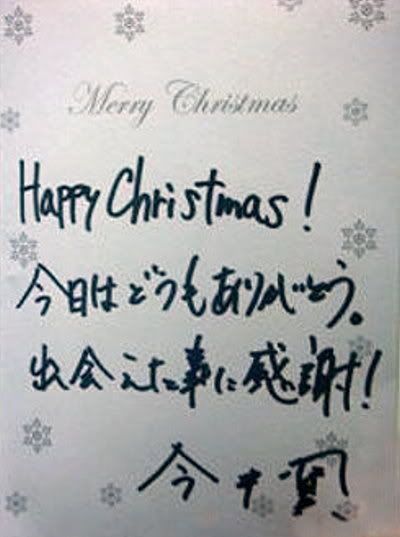 Merry Christmas
Happy Christmas!
今日はどうもありがとう。
出会えた事に感謝!
今井